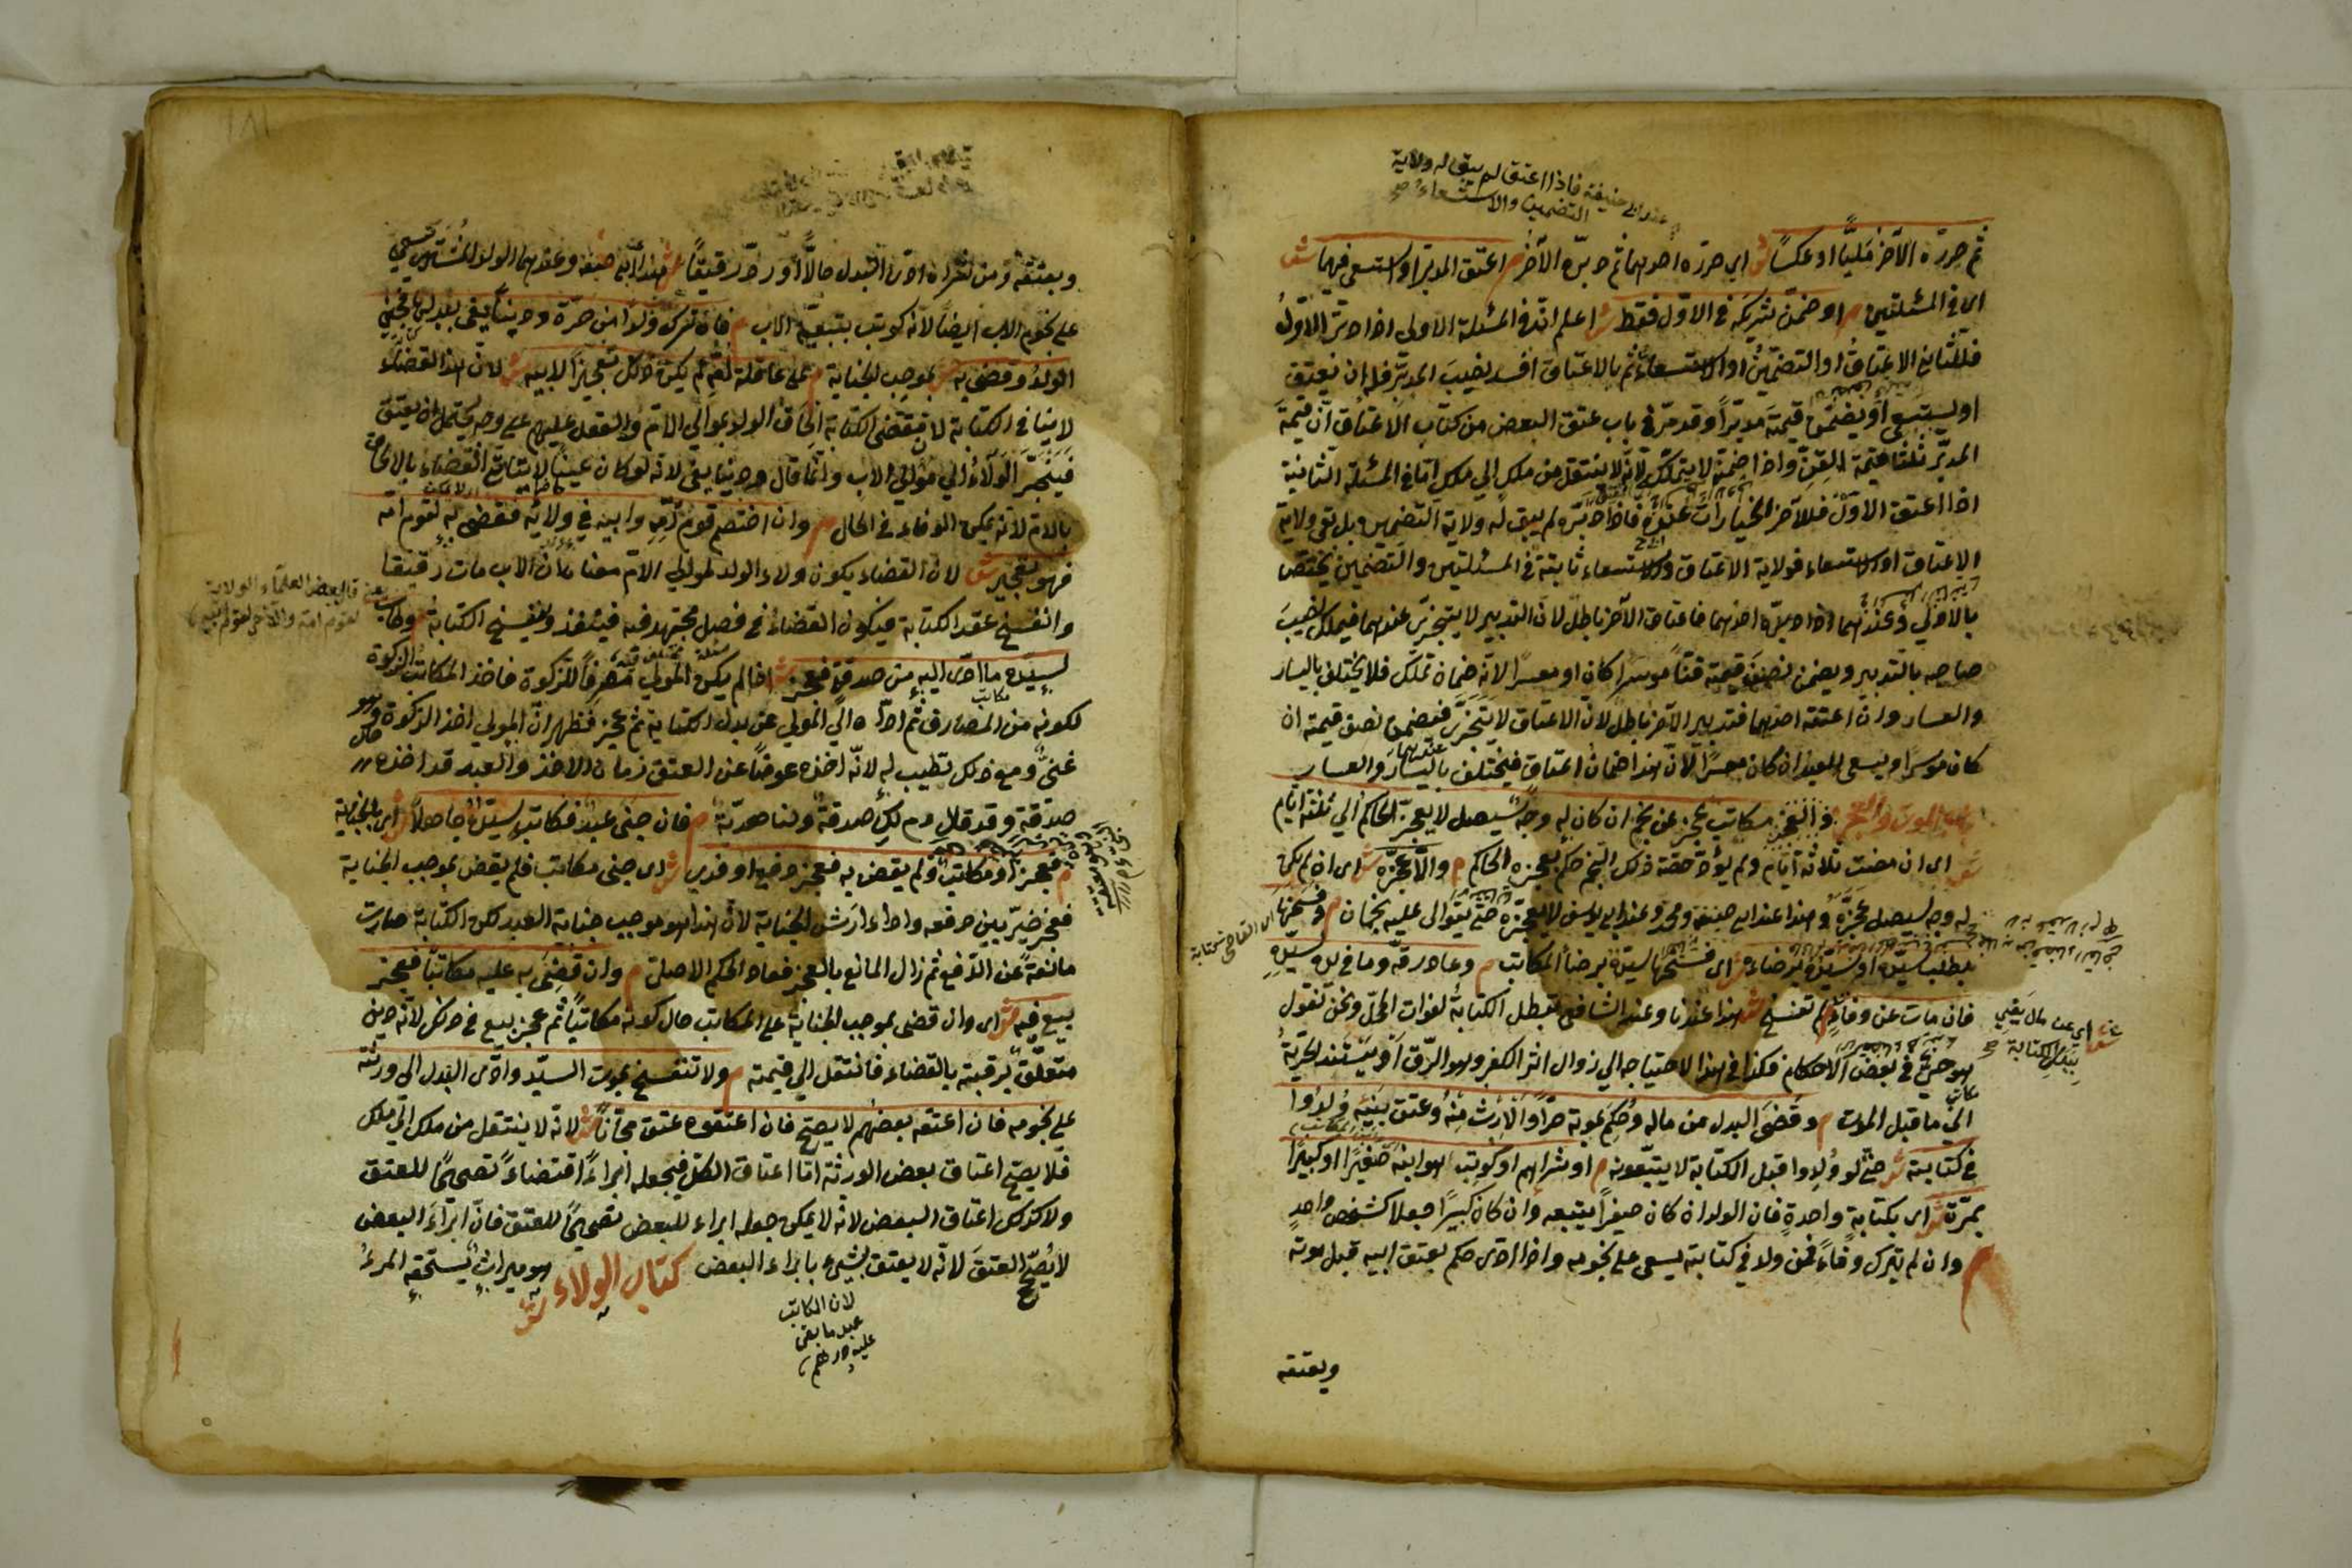 عند ابي حنيفة فاذا اعتق لم يبق له ولاية
التضمين والاستسعاء
ثم حرره الآخر مليًّا او عكسًا ش اي حرره احدهما ثم دبّره الآخر م اعتق المدبر او استسعى فيهما ش
اى فى المسئلتين م او ضمن شريكه فى الاول فقط ش اعلم انّ فى المسئلة الاولى اذا دبّر الاول
فللثاني الاعتاق او التضمين او الاستسعاء ثم بالاعتاق افسد نصيب المدبّر فله ان يعتق
او يستسعى او يضمن قيمته مدبّرًا وقد مرّ في باب عتق البعض من كتاب الاعتاق انّ قيمة
المدبّر ثلثا قيمة القنّ واذا ضمنه لا يتملكه لانه لا ينتقل من ملك الي ملك امّا في المسئلة الثانية
اذا اعتق الاول فللآخر الخيارات عنده فاذا دبّره لم يبق له ولاية التضمين بل بقى ولاية
الاعتاق او الاستسعاء فولاية الاعتاق والاستسعاء ثابتة في المسئلتين والتضمين يختص
بالاولي وعندهما اذا دبّره احدهما فاعتاق الآخر باطل لان التدبير لا يتجزى عندهما فيملك نصيب
صاحبه بالتدبير ويضمن نصف قيمته قنًّا موسرًا كان او معسرًا لانه ضمان تملك فلا يختلف باليسار
والعسار وان اعتقه احدهما فتدبير الآخر باطل لان الاعتاق لا يتجزى فيضمن نصف قيمته ان
كان موسرًا ويسعى العبد ان كان معسرًا لانّ هذا ضمان اعتاق فيختلف باليسار والعسار
باب الموت والعجز مكاتب عجز عن نجم ان كان له وجه سيصل لا يعجزه الحاكم الي ثلثة ايام
ش اى ان مضت ثلاثة ايام ولم يؤدّ حصة ذلك النجم حكم بعجزه الحاكم م والّا عجّزه ش اى ان لم يكن
له وجه سيصل عجّزه وهذا عند ابى حنيفة ومحمد وعند ابى يوسف لا يعجّزه حتى يتوالى عليه نجمان م وفسخها
بطلب سيّده او سيّده برضاه ش اى فسخها سيّده برضاء المكاتب م وعاد رقّه وما فى يده لسيّده
فان مات عن وفاء لم تفسخ ش هذا عندنا وعند الشافعى تبطل الكتابة لفوات المحلّ ونحن نقول
هو حيّ في بعض الاحكام فكذا في هذا الاحتياجه الي زوال اثر الكفر وهو الرّق او يستند الحريّة
الي ما قبل الموت م وقضى البدل من ماله وحكم بموته حرًّا والارث منه وعتق بنيه ولدوا
في كتابته ش حتى لو ولدوا قبل الكتابة لا يتبعونه م او شراهم او كوتب هو وابنه صغيرًا او كبيرًا
بمرّة ش اى بكتابة واحدة فان الولد ان كان صغيرًا يتبعه وان كان كبيرًا جعلا كشخص واحد
م وان لم يترك وفاءً فمن ولد في كتابته يسعى على نجومه واذا ادّى حكم بعتق ابيه قبل موته
اى عن مال يفي
ببدل الكتابة
ويعتقه
وبعتقه ومن شراه ادّى البدل حالًّا او ردّ رقيقًا ش هذا عند ابي حنيفة وعندهما الولد المشترى يسعى
على نجوم الاب ايضًا لانه كوتب بتبعيّة الاب م فان ترك ولدًا من حرّة ودينًا يفى ببدلها فجنى
الولد وقضى به ش بموجب الجناية م على عاقلة امّه لم يكن ذلك تعجيزًا لابيه ش لان هذا القضاء
لا ينافى الكتابة لان مقتضى الكتابة الحاق الولد بموالي الام والعقل عليهم على وجه يحتمل ان يعتق
فينجرّ الولاء الي موالي الاب وانّما قال ودينا يفى لانه لو كان عينًا لا يتأتى القضاء بالالحاق
بالام لانه يمكن الوفاء في الحال م وان اختصم قوم امّه وابيه في ولائه فقضى به لقوم امه
فهو تعجيز ش لان القضاء بكون ولاء الولد لموالي الام معناه ان الاب مات رقيقا
وانفسخ عقد الكتابة فيكون القضاء في فصل مجتهد فيه فينفذ وتفسخ الكتابة م وطاب
لسيّده ما ادّى اليه من صدقة فعجز ش اذا لم يكن المولي مصرفًا للزكوة فاخذ المكاتب الزكوة
لكونه من المصارف ثم ادّاه الي المولي عن بدل الكتابة ثم عجز فظهر انّ المولي اخذ الزكوة وهو
غنيّ ومع ذلك تطيب له لانه اخذه عوضًا عن العتق زمان الاخذ والعبد قد اخذه
صدقة وقد قال دم لك صدقة ولنا هديّة م فان جنى عبد فكاتبه سيّده جاهلًا ش اى بالجناية
م فعجز او مكاتب ولم يقض به فعجز دفع او فدى ش اى جنى مكاتب فلم يقض بموجب الجناية
فعجز خيّر بين دفعه واداء ارش الجناية لان هذا هو موجب جناية العبد لكن الكتابة صارت
مانعة عن الدفع ثم زال المانع بالعجز فعاد الحكم الاصلى م وان قضى به عليه مكاتبًا فعجز
بيع فيه ش اى وان قضى بموجب الجناية على المكاتب حال كونه مكاتبًا ثم عجز بيع في ذلك لانه دين
متعلق برقبته بالقضاء فانتقل الي قيمته م ولا تنفسخ بموت السيّد وادّى البدل الى ورثته
على نجومه فان اعتقه بعضهم لا يصح فان اعتقوه عتق مجانًا ش لانه لا ينتقل من ملك الي ملك
فلا يصح اعتاق بعض الورثة امّا اعتاق الكل فيجعله ابراءً اقتضاءً تصحيحًا للعتق
ولا كذلك اعتاق البعض لانه لا يمكن جعله ابراء للبعض تصحيحًا للعتق فانّ ابراء البعض
لا يصحّ العتق لانه لا يعتق بشيء بابراء البعض كتاب الولاء ش هو ميراث يستحقه المرء
لان المكاتب
عبد ما بقى
عليه درهم
قال بعض العلماء الولاية
لقوم امه والآخر لقوم ابيه